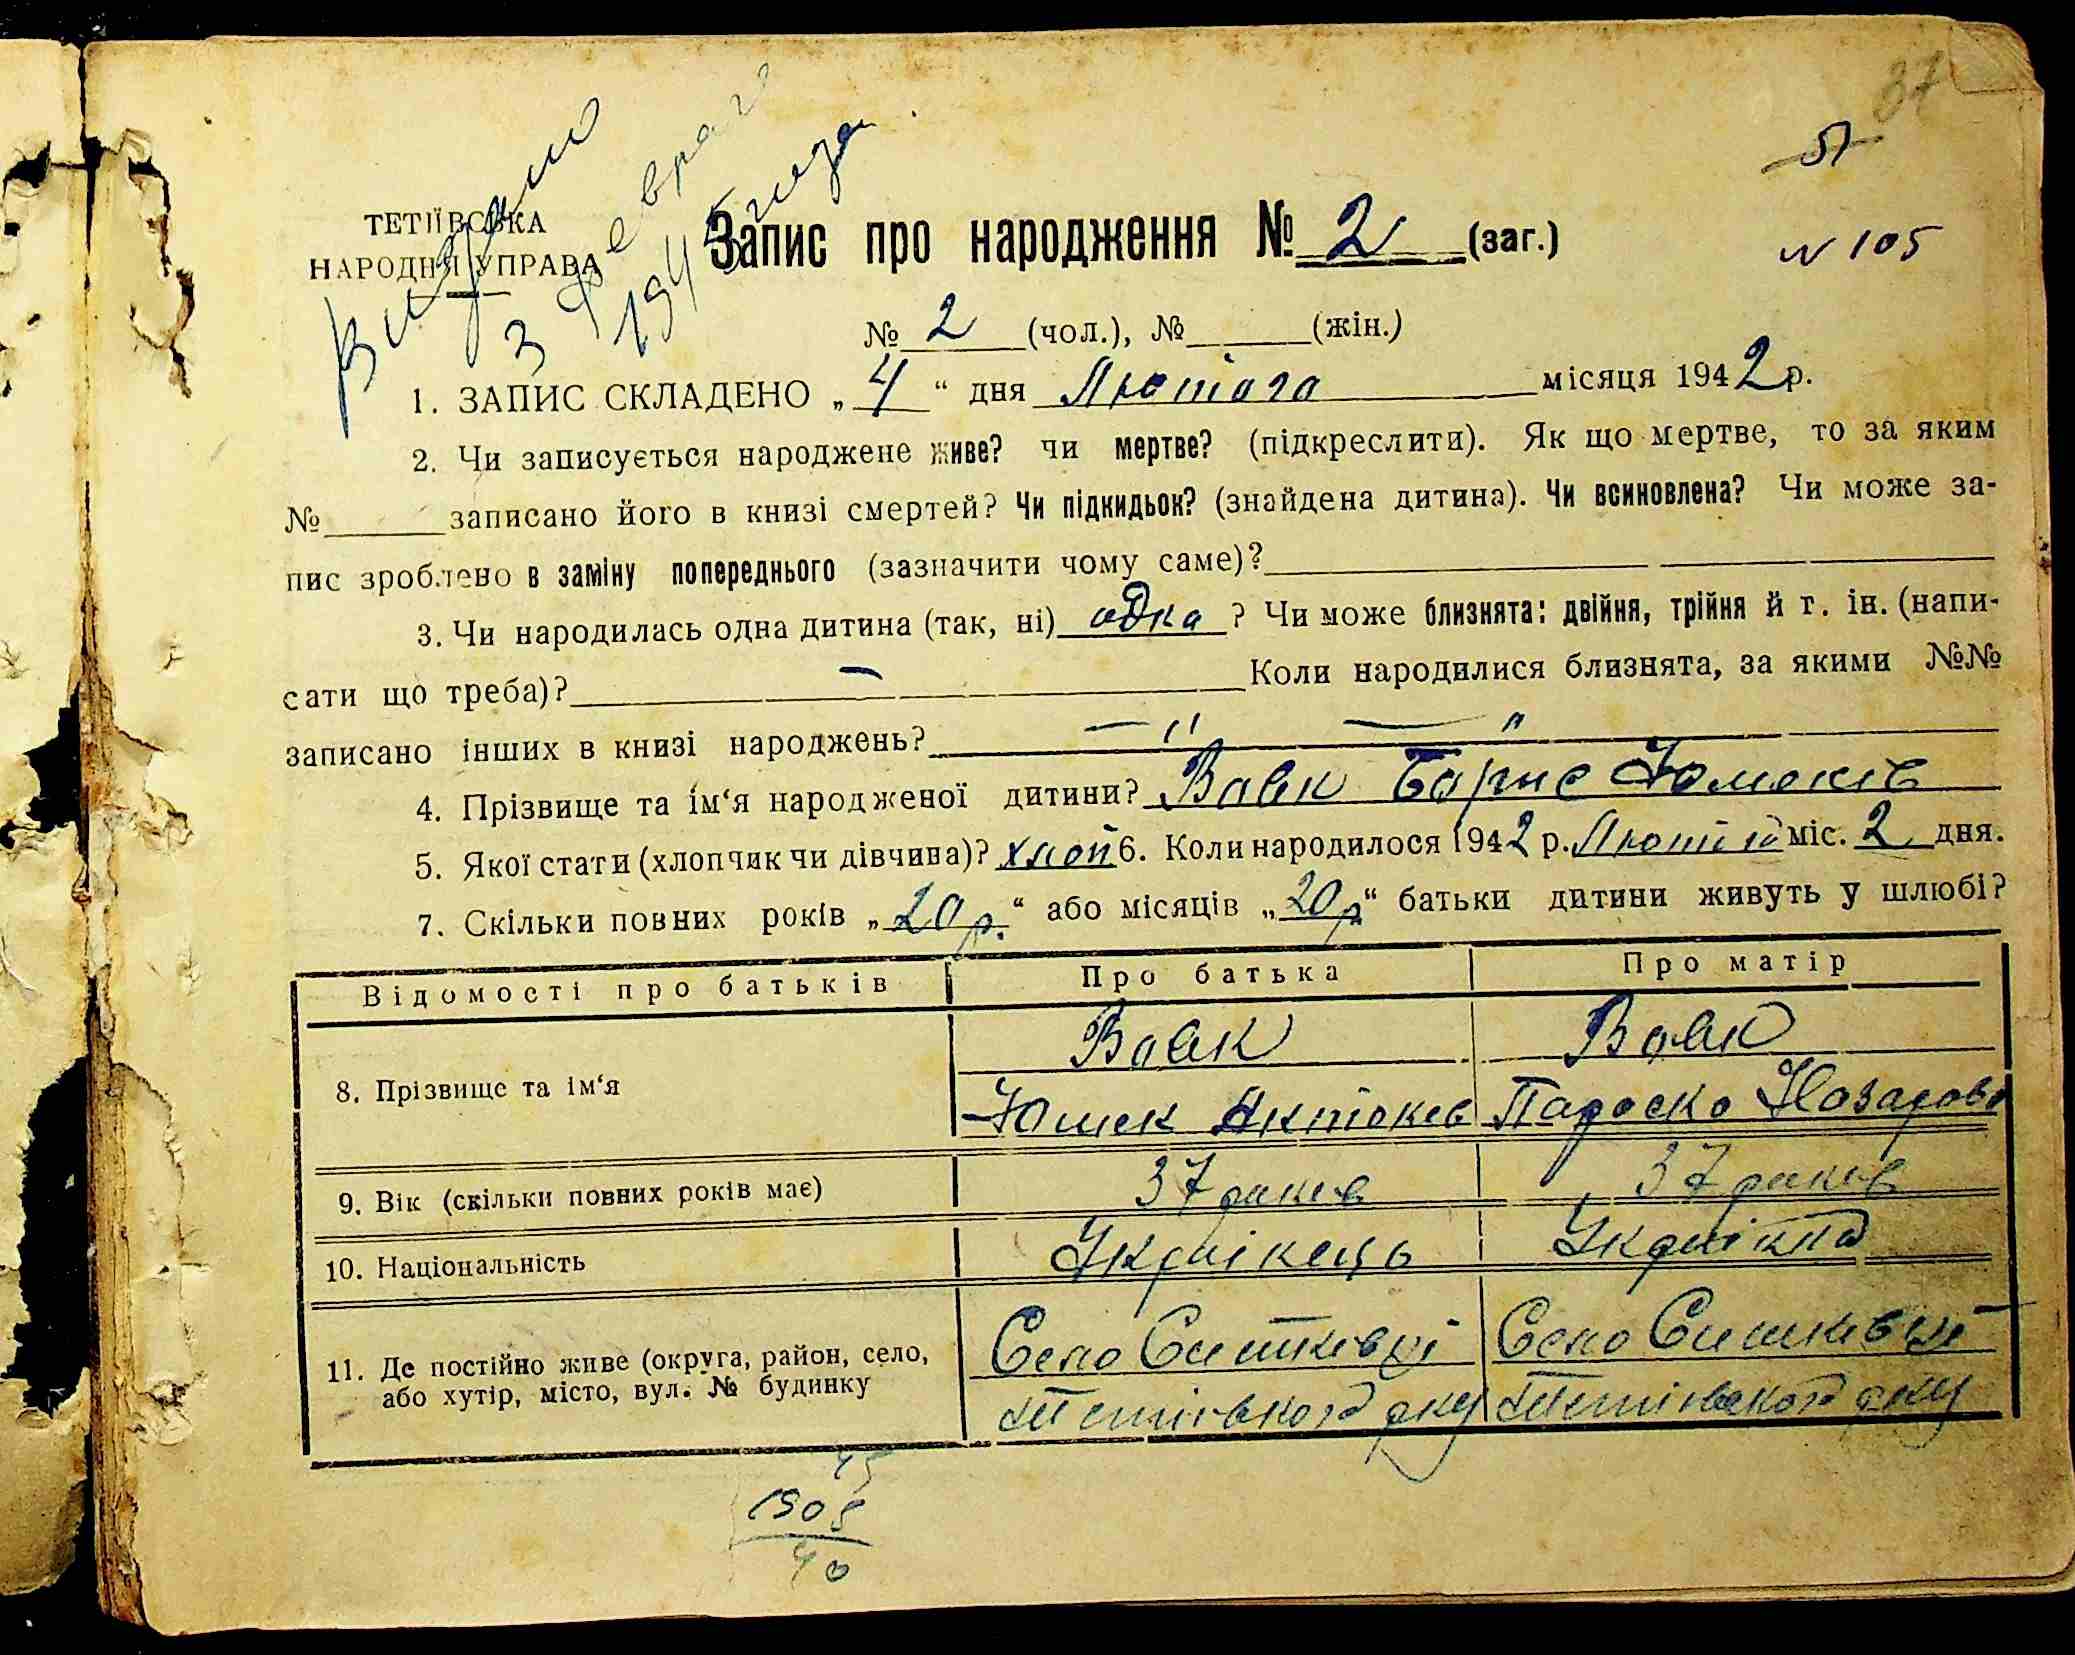 37
51
ТЕТІЇВСЬКА
НАРОДНЯ УПРАВА
Видано
3 февраля
1945 года.
Запис про народження № 2 (заг.)
N 105
№ 2 (чол.), № (жін.)
1. ЗАПИС СКЛАДЕНО „4“ дня Лютого місяця 1942 р.
2. Чи записується народжене живе? чи мертве? (підкреслити). Як що мертве, то за яким
№ записано його в книзі смертей? Чи підкидьок? (знайдена дитина). Чи всиновлена? Чи може за-
пис зроблено в заміну попереднього (зазначити чому саме)?
3. Чи народилась одна дитина (так, ні) одна ? Чи може близнята: двійня, трійня й т. ін. (напи-
сати що треба)? — Коли народилися близнята, за якими №№
записано інших в книзі народжень? — " — "
4. Прізвище та ім‘я народженої дитини? Вовк Борис
5. Якої стати (хлопчик чи дівчина)? хлоп 6. Коли народилося 1942 р. Лютий міс. 2 дня.
7. Скільки повних років „20 р.“ або місяців „20 р“ батьки дитини живуть у шлюбі?
Відомості про батьків Про батька Про матір
Вовк Вовк
8. Прізвище та ім‘я
Юмек Антонів Параска Назарова
9. Вік (скільки повних років має) 37 років 37 років
10. Національність Українець Українка
11. Де постійно живе (округа, район, село, Село Ситківці Село Ситківці
або хутір, місто, вул. № будинку Тетіівского рну Тетіівского рну
45
1905
40